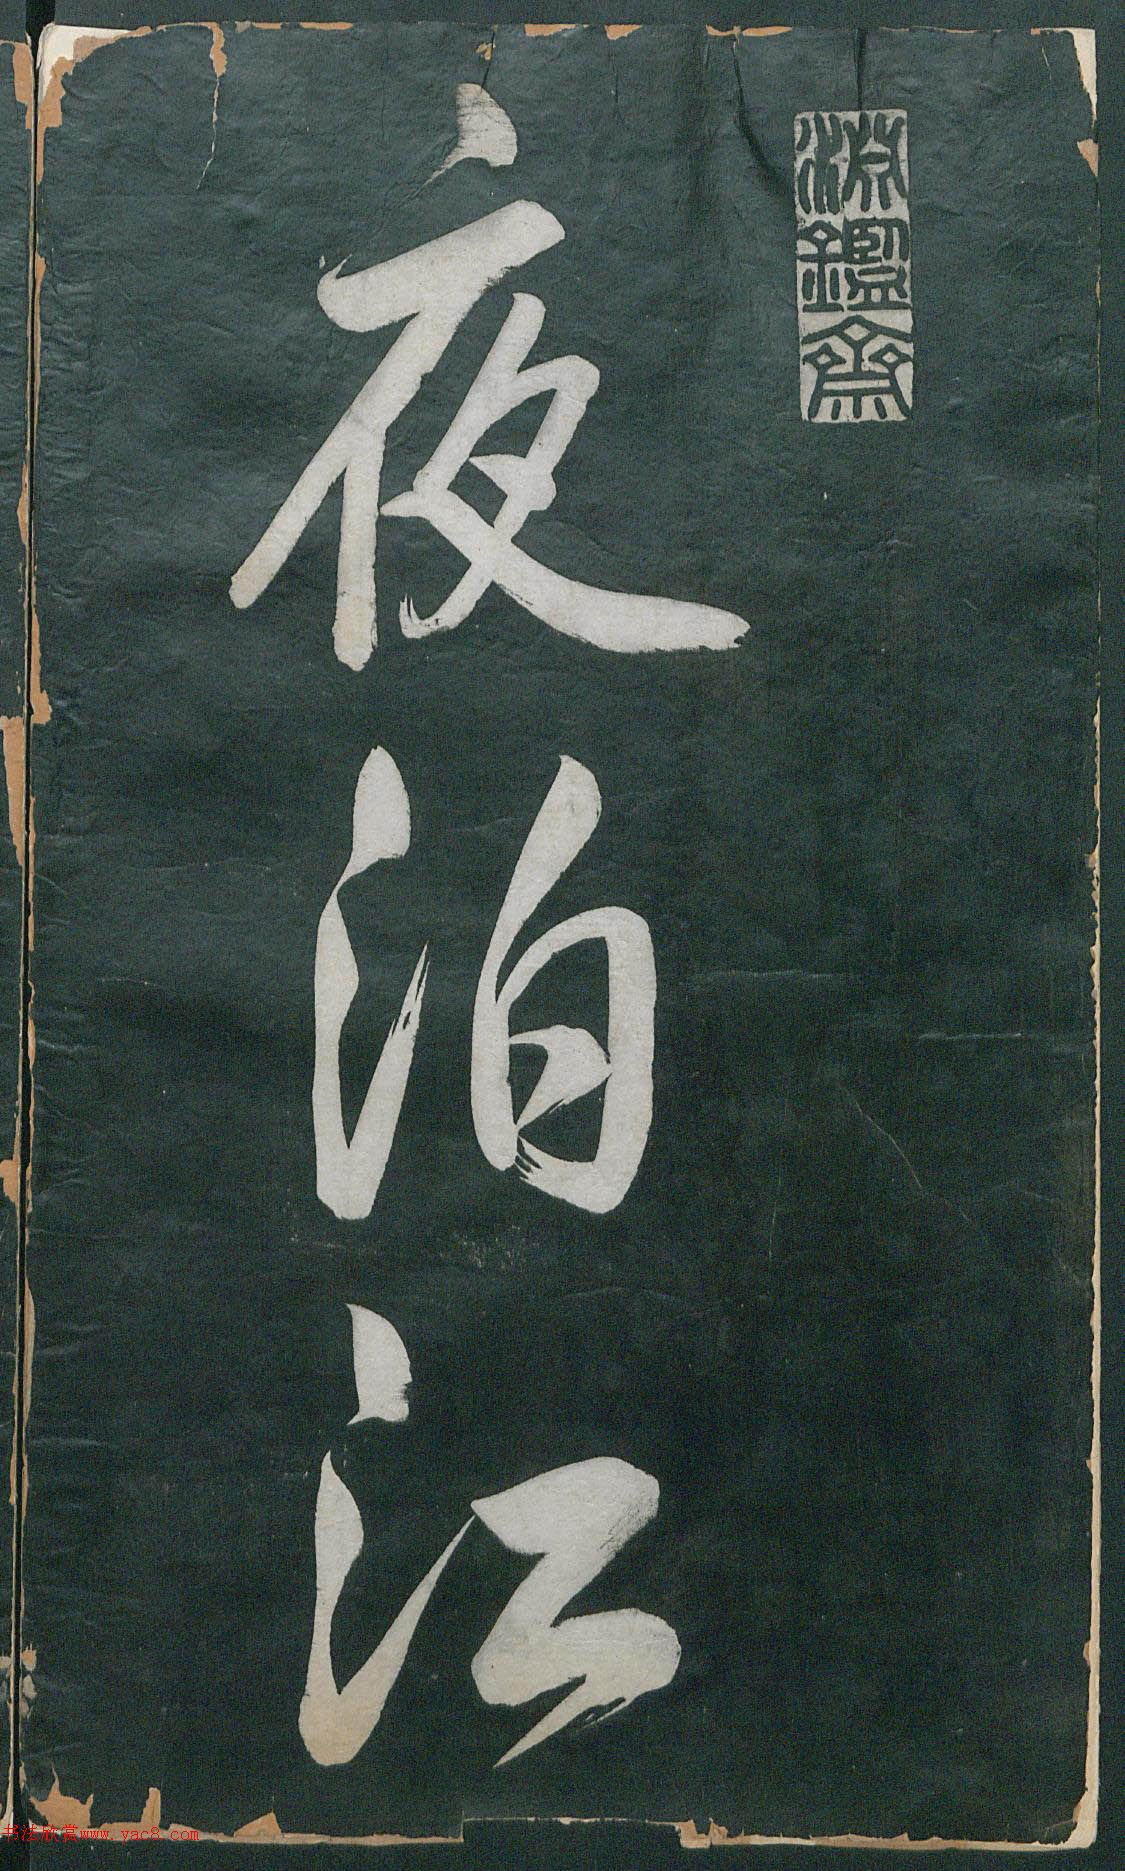 淵鑑齋
夜泊江
书法欣赏www.yac8.com